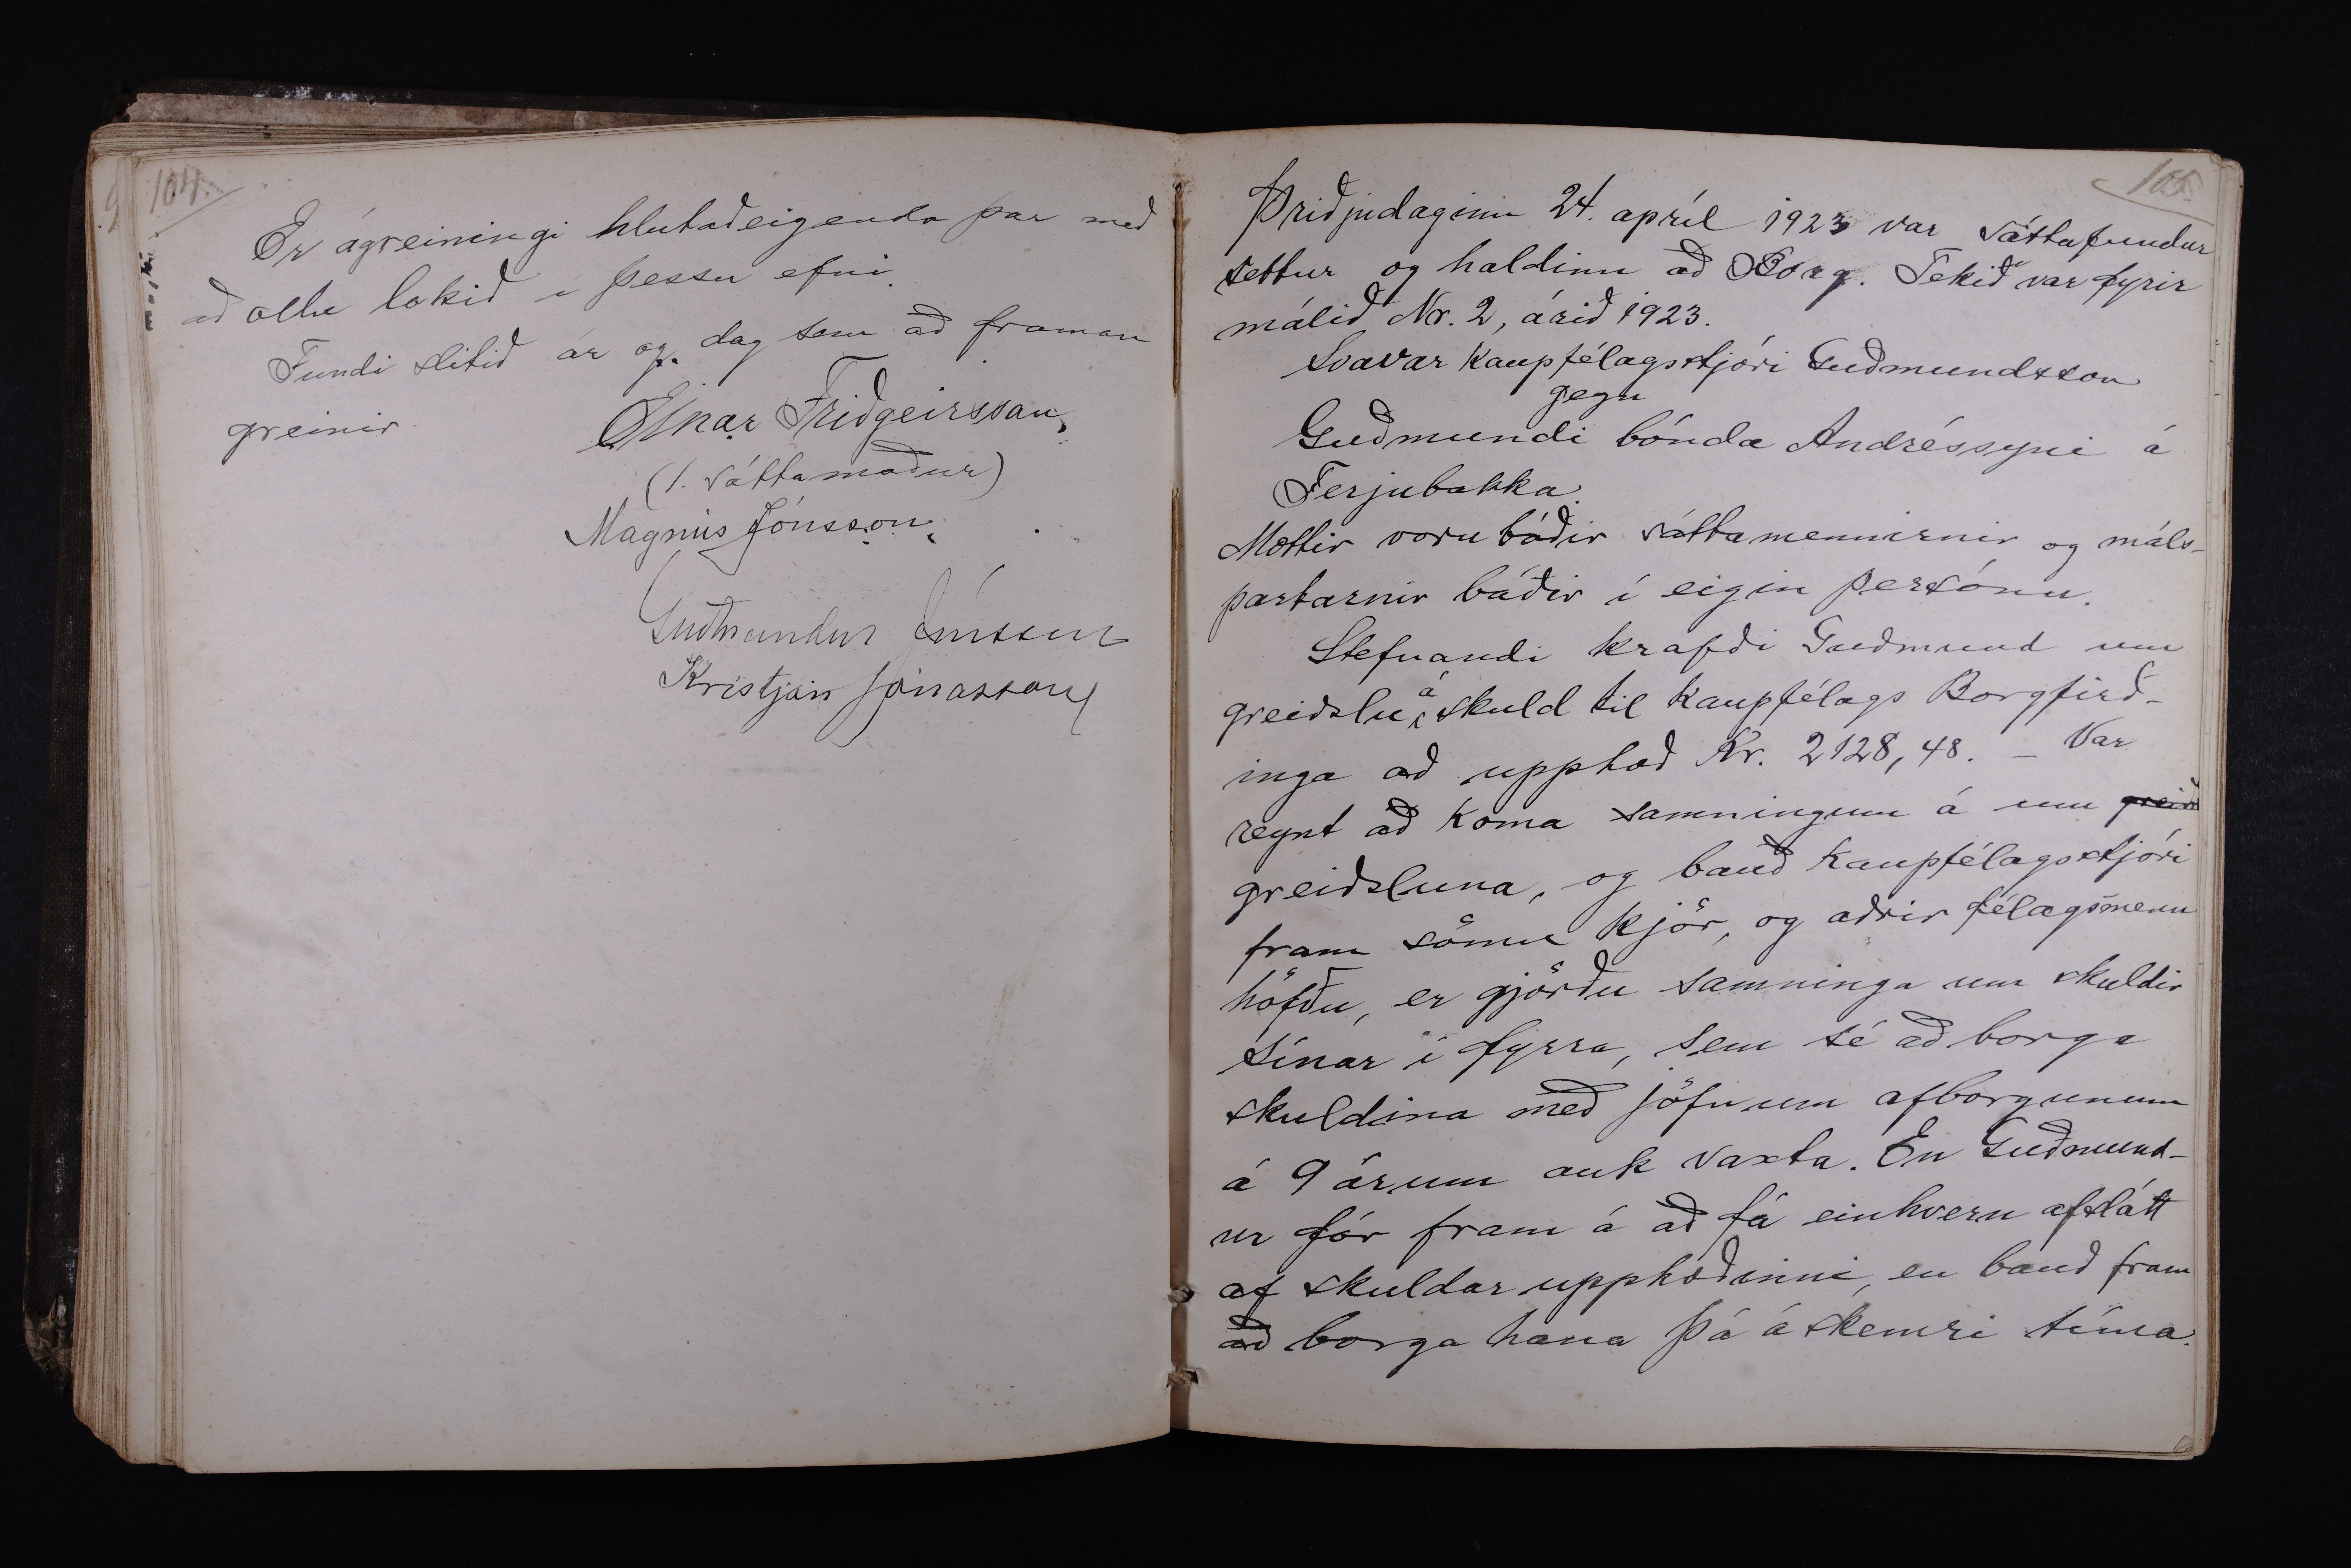 104.
Er ágreiningi hlutaðeigenda þar með
að öllu lokið í þessu efni.
Fundi slitið ár og dag sem að framan
greinir
Einar Friðgeirsson,
(1. sáttamaður)
Magnús Jónsson,
Guðmundur Jónsson
Kristján Jónasson
105.
Þriðjudaginn 24. apríl 1923 var sáttafundur
settur og haldinn að Borg. Tekið var fyrir
málið Nr. 2, árið 1923.
Svavar kaupfélagsstjóri Guðmundsson
gegn
Guðmundi bónda Andréssyni á
Ferjubakka.
Mættir voru báðir sáttamennirnir og máls-
partarnir báðir í eigin persónu.
Stefnandi krafði Guðmund um
greiðslu á skuld til Kaupfélags Borgfirð-
inga að upphæð Kr. 2128,48. – Var
reynt að koma samningum á um greiðs
greiðsluna, og bauð kaupfélagsstjóri
fram sömu kjör, og aðrir félagsmenn
höfðu, er gjörðu samninga um skuldir
sínar í fyrra, sem sé að borga
skuldina með jöfnum afborgunum
á 9 árum auk vaxta. En Guðmund-
ur fór fram á að fá einhvern afslátt
af skuldarupphæðinni, en bauð fram
að borga hana þá á skemri tíma.